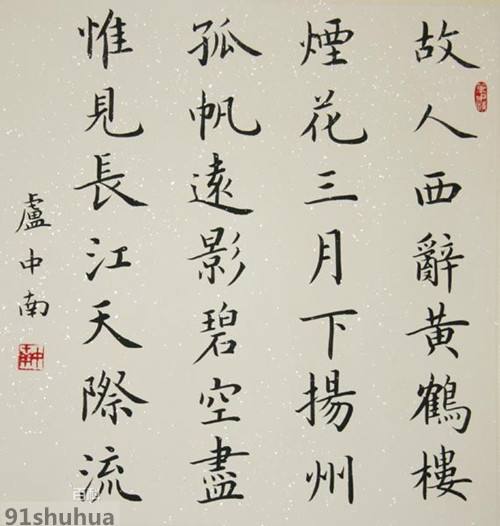 故人西辭黃鶴樓
煙花三月下揚州
孤帆遠影碧空盡
惟見長江天際流
盧中南
91shuhua